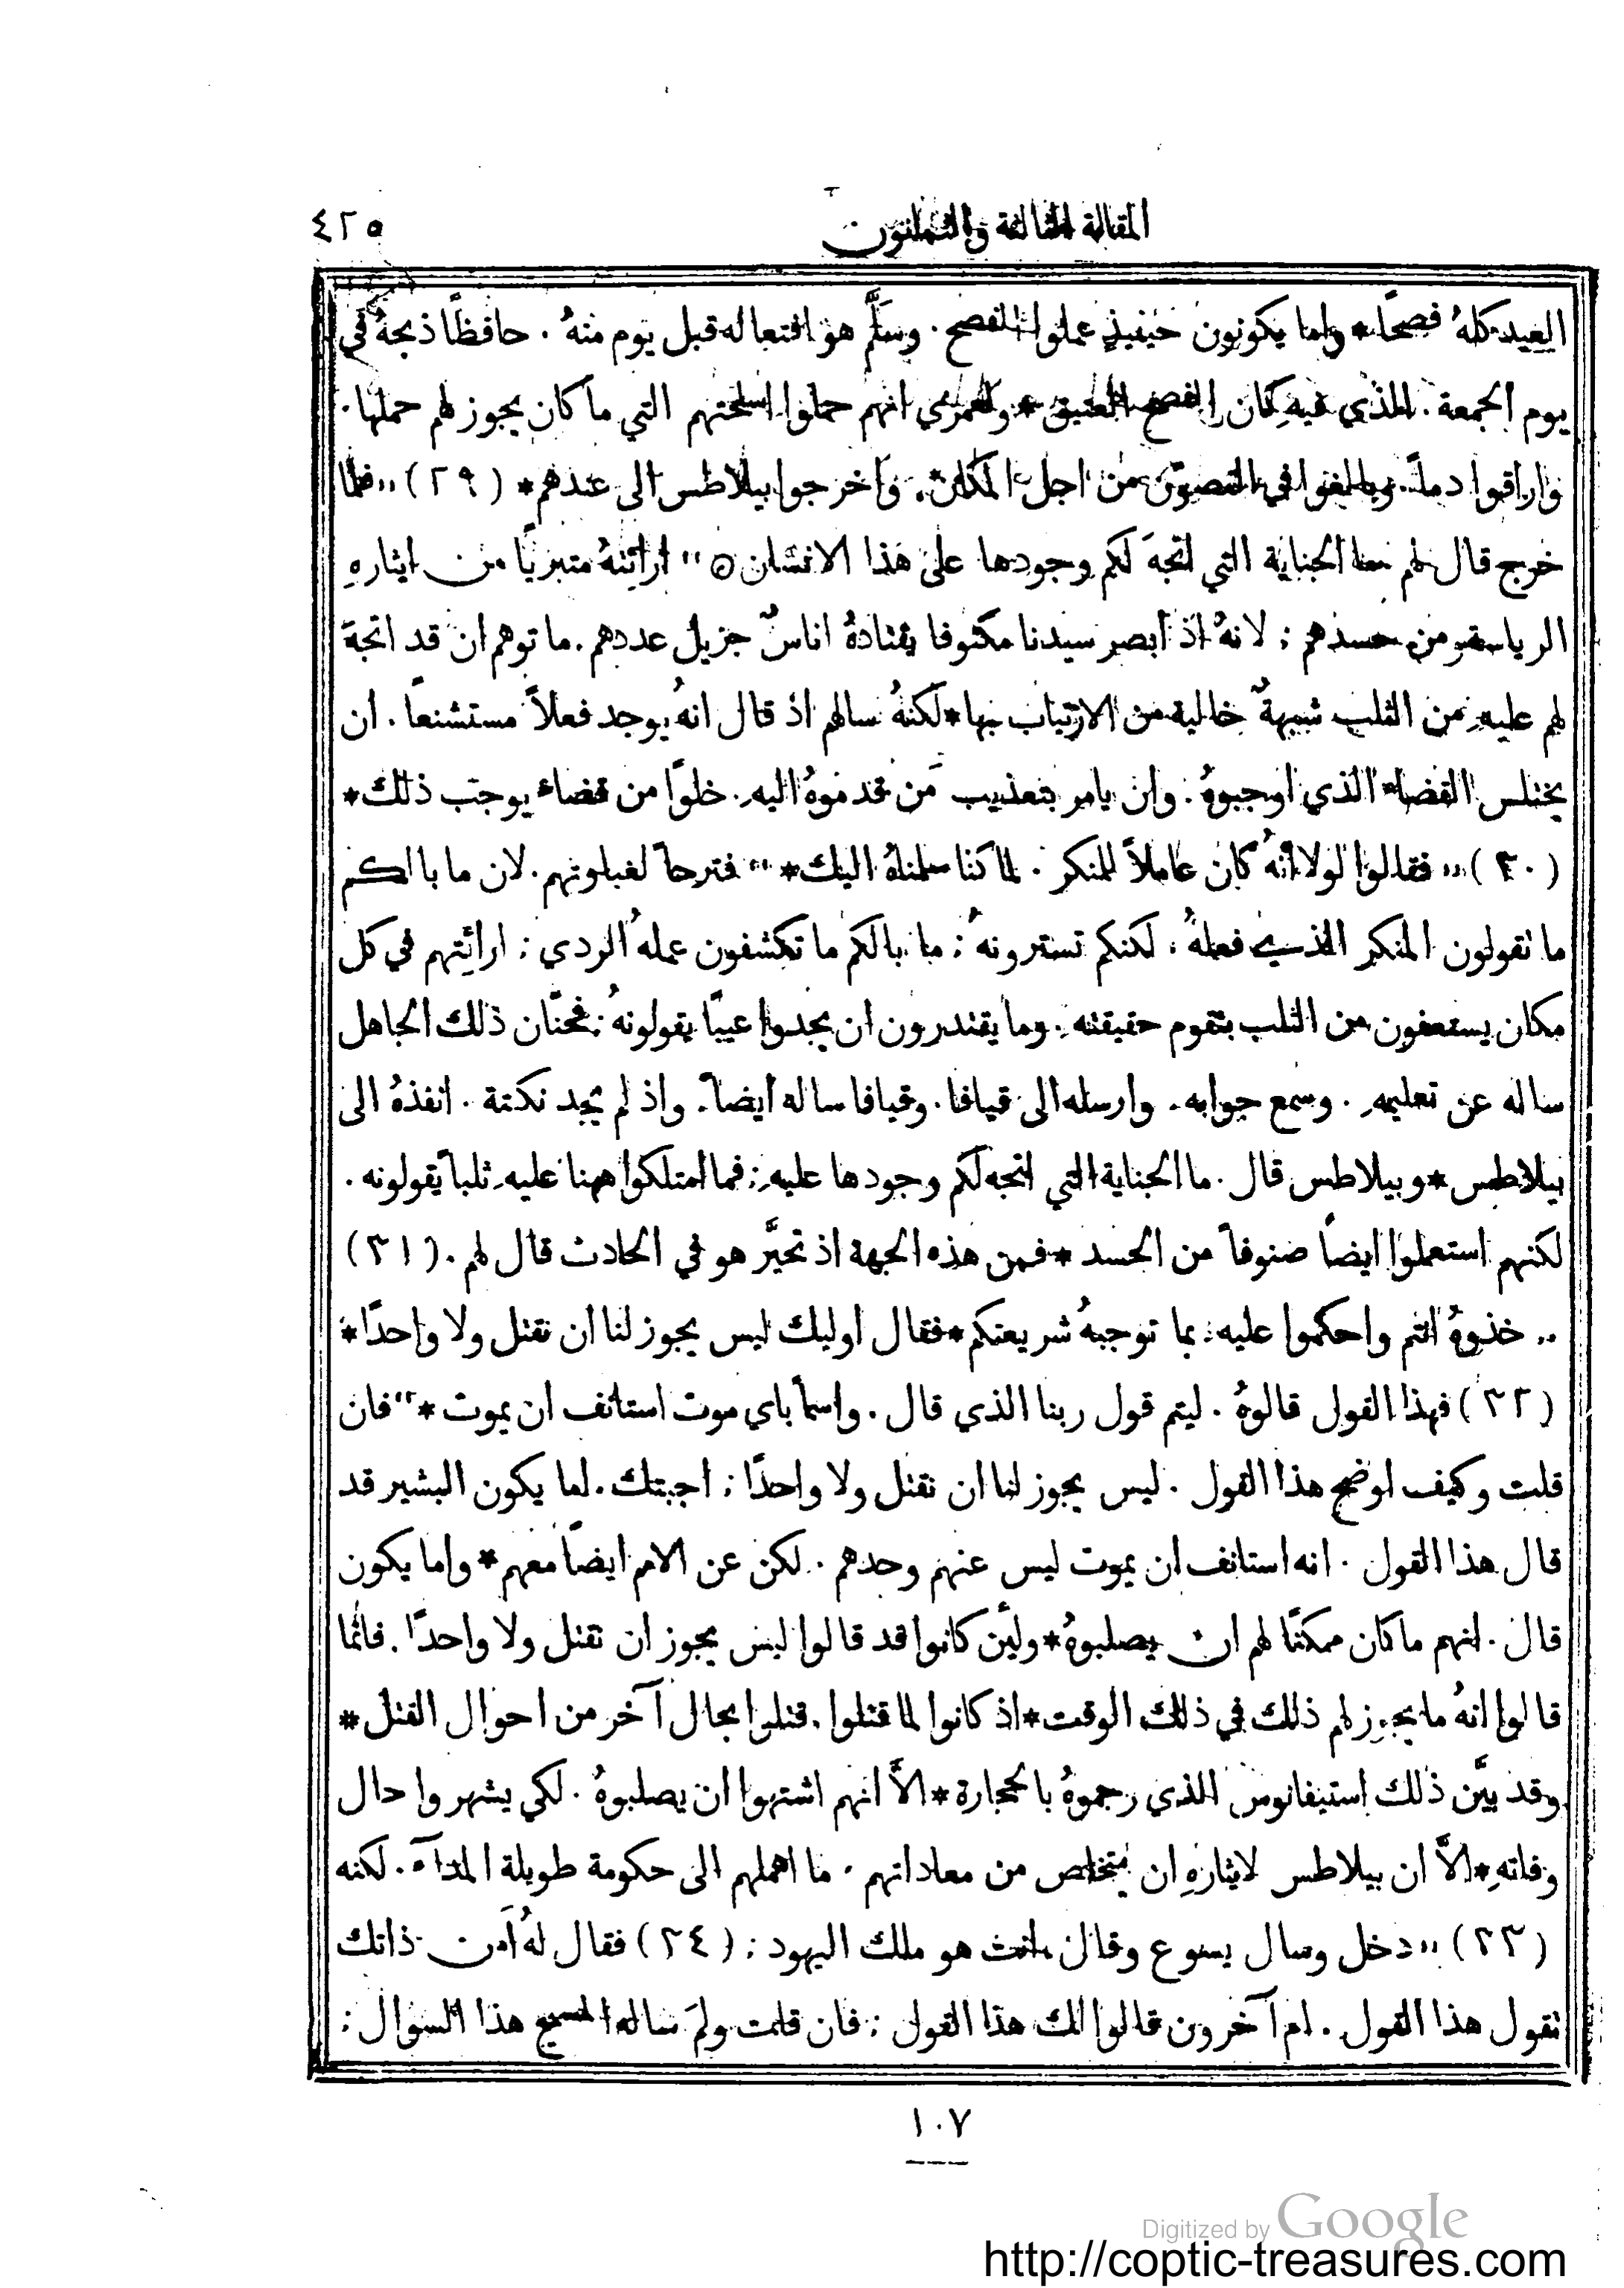 المقالة الثالثة والثمانون
٤٢٥
العيد كلهُ فصحًا * واما يكونون حينيذٍ عملوا الفصح . وسلَّم هو افتعاله قبل يوم منهُ . حافظًا ذبجهُ في
يوم الجمعة . الذي فيهِ كان الفصح العتيق * ولعمري انهم حملوا اسلحتهم التي ما كان يجوز لهم حملها .
واراقوا دماً . وبالغوا في التصوّن من اجل المكان . واخرجوا بيلاطس الى عندهم * (٢٩) ,, فلما
خرج قال لهم ما الجناية التي اتجهَ لكم وجودها على هذا الانسان ,, ارأيتهُ متبريًا من ايثارهِ
الرياسة ومن حسدهم ; لانهُ اذ ابصر سيدنا مكتوفا يقتادهُ اناسٌ جزيل عددهم . ما توهم ان قد اتجهَ
لهم عليهِ من الثلب شبهةٌ خالية من الارتياب بها * لكنهُ سالهم اذ قال انهُ يوجد فعلاً مستشنعًا . ان
يختلس القضاء الذي اوجبوهُ . وان يامر بتعذيب مَن قدموهُ اليهِ . خلوًا من قضاء يوجب ذلك *
(٣٠) ,, فقالوا لولا أنهُ كان عاملاً للمنكر . لما كنا سلمناهُ اليك * ,, فترحاً لغباوتهم . لان ما بالكم
ما تقولون المنكر الذي فعلهُ . لكنكم تسترونهُ ; ما بالكم ما تكشفون عملهُ الردي ; ارأيتهم في كل
مكان يستعفون من الثلب بتقوم حقيقته . وما يقتدرون ان يجدوا عيبًا يقولونهُ ; فحنّان ذلك الجاهل
ساله عن تعليمهِ . وسمع جوابه . وارسله الى قيافا . وقيافا ساله ايضاً . واذ لم يجد نكتة . انفذهُ الى
بيلاطس * وبيلاطس قال . ما الجناية التي اتجه لكم وجودها عليهِ ; فما امتلكوا ههنا عليهِ ثلباً يقولونه .
لكنهم استعملوا ايضاً صنوفاً من الحسد * فمن هذه الجهة اذ تحيَّر هو في الحادث قال لهم . (٣١)
,, خذوهُ انتم واحكموا عليه . بما توجبهُ شريعتكم * فقال اوليك ليس يجوز لنا ان نقتل ولا واحدًا *
(٣٢) فهذا القول قالوهُ . ليتم قول ربنا الذي قال . واسماً باي موت استانف ان يموت * ,, فان
قلت وكيف اوضح هذا القول . ليس يجوز لنا ان نقتل ولا واحدًا ; اجبتك . اما يكون البشير قد
قال هذا القول . انه استانف ان يموت ليس عنهم وحدهم . لكن عن الامم ايضاً معهم * واما يكون
قال . انهم ما كان ممكنًا لهم ان يصلبوهُ * ولئن كانوا قد قالوا ليس يجوز ان نقتل ولا واحدًا . فانما
قالوا انهُ ما يجوز لهم ذلك في ذلك الوقت * اذ كانوا لما قتلوا . قتلوا بحال آخر من احوال القتل *
وقد بيَّن ذلك استيفانوس الذي رجموهُ بالحجارة * الاَّ انهم اشتهوا ان يصلبوهُ . لكي يشهروا حال
وفاتهِ * الاَّ ان بيلاطس لايثارهِ ان يتخلص من معاداتهم . ما اهملهم الى حكومة طويلة المدآه . لكنه
(٣٣) ,, دخل وسال يسوع وقال انت هو ملك اليهود ; (٣٤) فقال لهُ أمن ذاتك
تقول هذا القول . ام آخرون قالوا لك هذا القول ; فان قلت ولمَ ساله المسيح هذا السوال ;
١٠٧
Digitized by Google
http://coptic-treasures.com